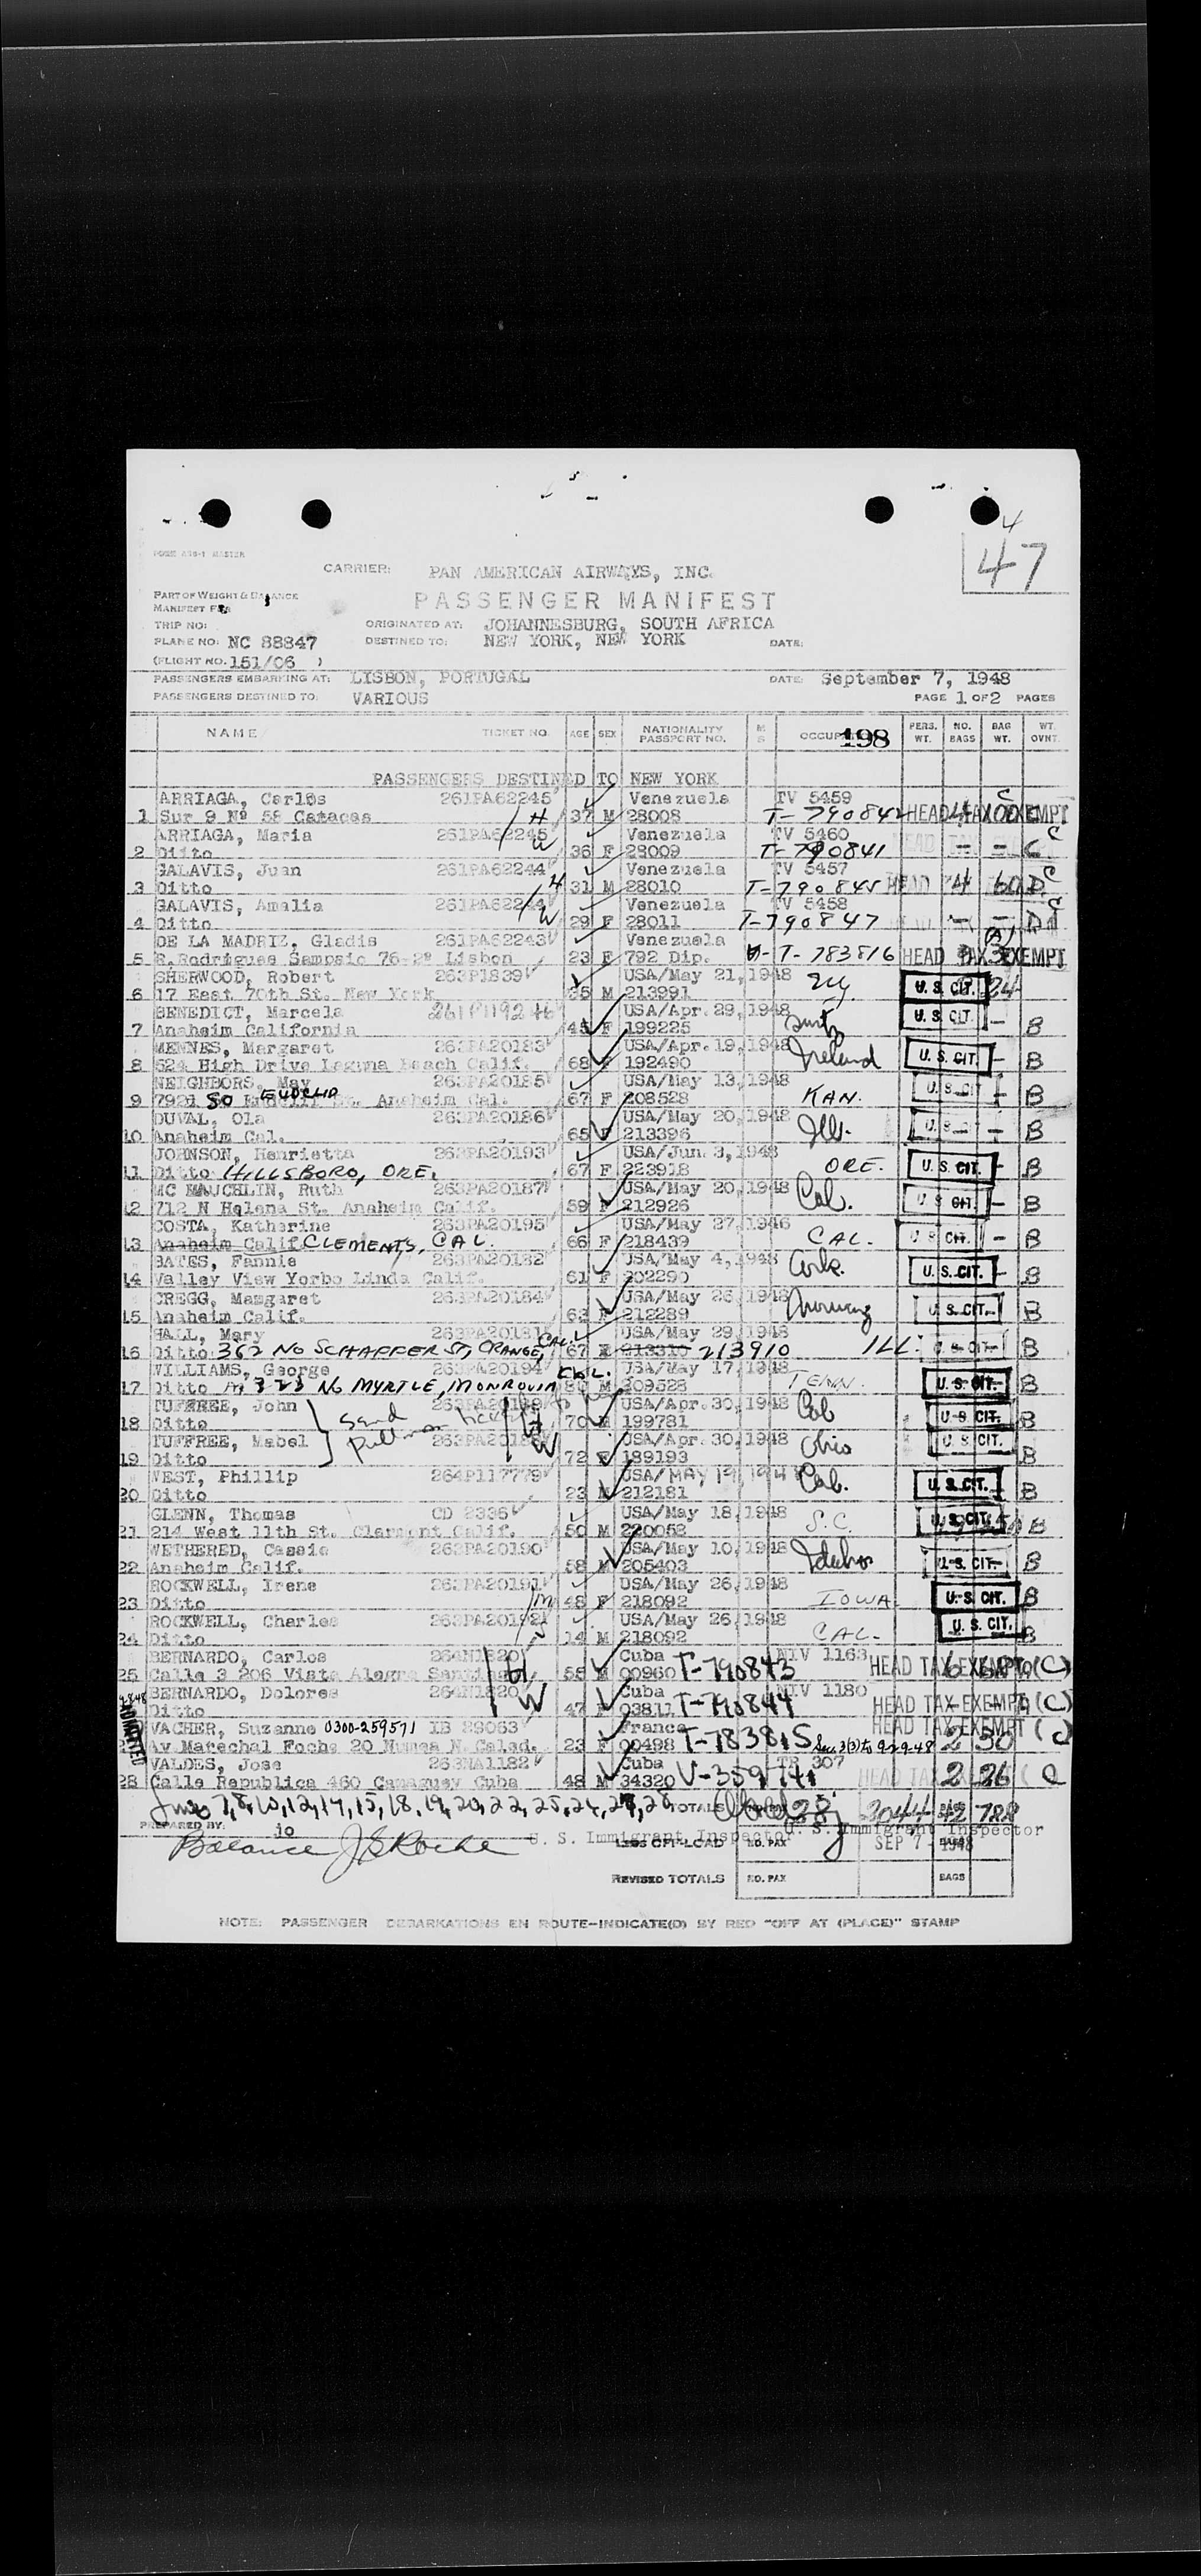 4
47
FORM MASTER
CARRIER: PAN AMERICAN AIRWAYS, INC.
PART OF WEIGHT & BALANCE
MANIFEST
PASSENGER MANIFEST
TRIP NO:
ORIGINATED AT: JOHANNESBURG, SOUTH AFRICA
PLANE NO: NC 88847 DESTINED TO: NEW YORK, NEW YORK DATE:
(FLIGHT NO. 151/06 )
PASSENGERS EMBARKING AT: LISBON, PORTUGAL DATE: September 7, 1948
PASSENGERS DESTINED TO: VARIOUS PAGE 1 OF 2 PAGES
NAME TICKET NO. AGE SEX NATIONALITY PASSPORT NO. M S 198 PERS. WT. NO. BAGS BAG WT. WT. OVNT.
PASSENGERS DESTINED TO NEW YORK
ARRIAGA, Carlos 261PA62245 Venezuela TV 5459 C
1 Sur 9 Nº 58 Cataces H 37 M 28008 T-790842 HEAD TAX EXEMPT
ARRIAGA, Maria 261PA62245 Venezuela TV 5460 C
2 Ditto W 36 F 28009 T-790841 - - C
GALAVIS, Juan 261PA62244 Venezuela TV 5457 C
3 Ditto H 31 M 28010 T-790845 HEAD 4 60 D
GALAVIS, Amalia 261PA62244 Venezuela TV 5458 C
4 Ditto W 29 F 28011 T-790847 - - D
DE LA MADRIZ, Gladis 261PA62243 Venezuela
5 R.Rodrigues Sampaio 76-2º Lisbon 23 F 792 Dip. T-783816 HEAD TAX EXEMPT
SHERWOOD, Robert 263P1839 USA/May 21,1948 NY.
6 17 East 70th St. New York M 213991 U.S. CIT. 24
BENEDICT, Marcela USA/Apr.29,1948
7 Anaheim California 45 F 199225 U.S. CIT. - B
MENNES, Margaret 263PA20183 USA/Apr.19,1948 Ireland
8 524 High Drive Laguna Beach Calif. 68 F 192490 U.S. CIT. - B
NEIGHBORS, May 263PA20185 USA/May 13,1948
9 SO EUCLID Anaheim Cal. 67 F 208528 KAN. U.S. CIT - B
DUVAL, Ola 263PA20186 USA/May 20,1948
10 Anaheim Cal. 65 F 213396 Ills. U.S. - B
JOHNSON, Henrietta 263PA20193 USA/Jun.3,1948
11 Ditto HILLSBORO, ORE. 67 F 223918 ORE. U.S. CIT. - B
MC MAUCHLIN, Ruth 263PA20187 USA/May 20,1948 Cal.
12 712 N Helena St. Anaheim Calif. 59 F 212926 U.S. CIT. - B
COSTA, Katharine 263PA20195 USA/May 27,1946
13 Anaheim Calif CLEMENTS, CAL. 66 F 218439 CAL. U.S. CIT. - B
BATES, Fannie 263PA20182 USA/May 4,1948
14 Valley View Yorbo Linda Calif. 61 F 202290 U.S. CIT. B
CREGG, Margaret 263PA20184 USA/May 26,1948 Norway
15 Anaheim Calif. 63 F 212289 U.S. CIT. B
HALL, Mary USA/May 29,1948
16 Ditto 362 NO SCHAFFER ST, ORANGE, CAL. 67 F 213310 213910 ILL. U.S. CIT. B
WILLIAMS, George 263PA20194 USA/May 17,1948
17 Ditto 323 NO MYRTLE, MONROVIA CAL. 80 M 209528 TENN. U.S. CIT. B
TUFFREE, John USA/Apr.30,1948
18 Ditto send H 70 M 199781 U.S CIT. B
TUFFREE, Mabel USA/Apr.30,1948 Ohio
19 Ditto Pullman W 72 F 189193 U.S CIT. B
WEST, Phillip 264P117779 USA/MAY 19,1948
20 Ditto 23 M 212181 Cal. U.S. CIT. B
GLENN, Thomas CD 2336 USA/May 18,1948
21 214 West 11th St. Clarmont Calif. 50 M 220052 S.C. U.S. CIT. B
WETHERED, Cassie 263PA20190 USA/May 10,1948
22 Anaheim Calif. 58 M 205403 Idaho U.S. CIT B
ROCKWELL, Irene 263PA20191 USA/May 26,1948
23 Ditto M 48 F 218092 IOWA. U.S. CIT. B
ROCKWELL, Charles 263PA20192 USA/May 26,1948
24 Ditto 14 M 218092 CAL. U.S. CIT. B
BERNARDO, Carlos 264N1820 Cuba NIV 1163
25 Calle 3 206 Vista Alegre Santiago H 55 M 00960 T-790843 HEAD TAX EXEMPT (C)
BERNARDO, Dolores 264N1820 Cuba NIV 1180
Ditto W 47 F 03811 T-790844 HEAD TAX EXEMPT (C)
ADMITTED
VACHER, Suzanne 0300-259571 IB 29063 France HEAD TAX EXEMPT (C)
Av Marechal Foche 20 Numea N. Caled. 23 F 00498 T-783815 Sec. 3(3) to 9-29-48 2 30
VALDES, Jose 263NA1182 Cuba TR 307
28 Calle Republica 460 Camaguey Cuba 48 M 34320 V-359141 HEAD TAX 2 26 C
Lines 7,8,10,12,14,15,18,19,20,22,25,26,27,28 TOTALS 28 2044 42 788
PREPARED BY: jo
Balance J S Roche U. S. Immigrant Inspector U. S. Immigrant Inspector
LESS OFF-LOAD NO. PAX SEP 7 1948 BAGS
REVISED TOTALS NO. PAX BAGS
NOTE: PASSENGER DEBARKATIONS EN ROUTE-INDICATE(D) BY RED "OFF AT (PLACE)" STAMP